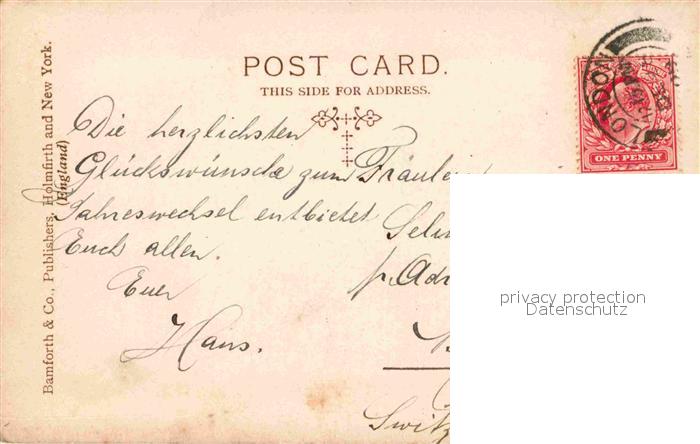 POST CARD.
THIS SIDE FOR ADDRESS.
Bamforth & Co., Publishers, Holmfirth and New York.
(England)
LONDON
ONE PENNY
Die herzlichsten
Glückswünsche zum
Jahreswechsel entbietet
Euch allen.
Euer
Hans.
Fräulein
p. Adr
Switz
privacy protection
Datenschutz